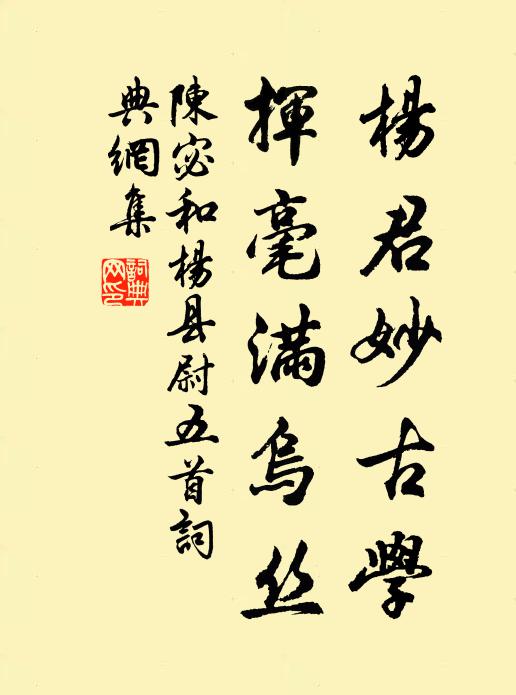 楊君妙古學
揮毫滿烏丝
陳宓和楊县尉五首詞
典網集
詞典
网印